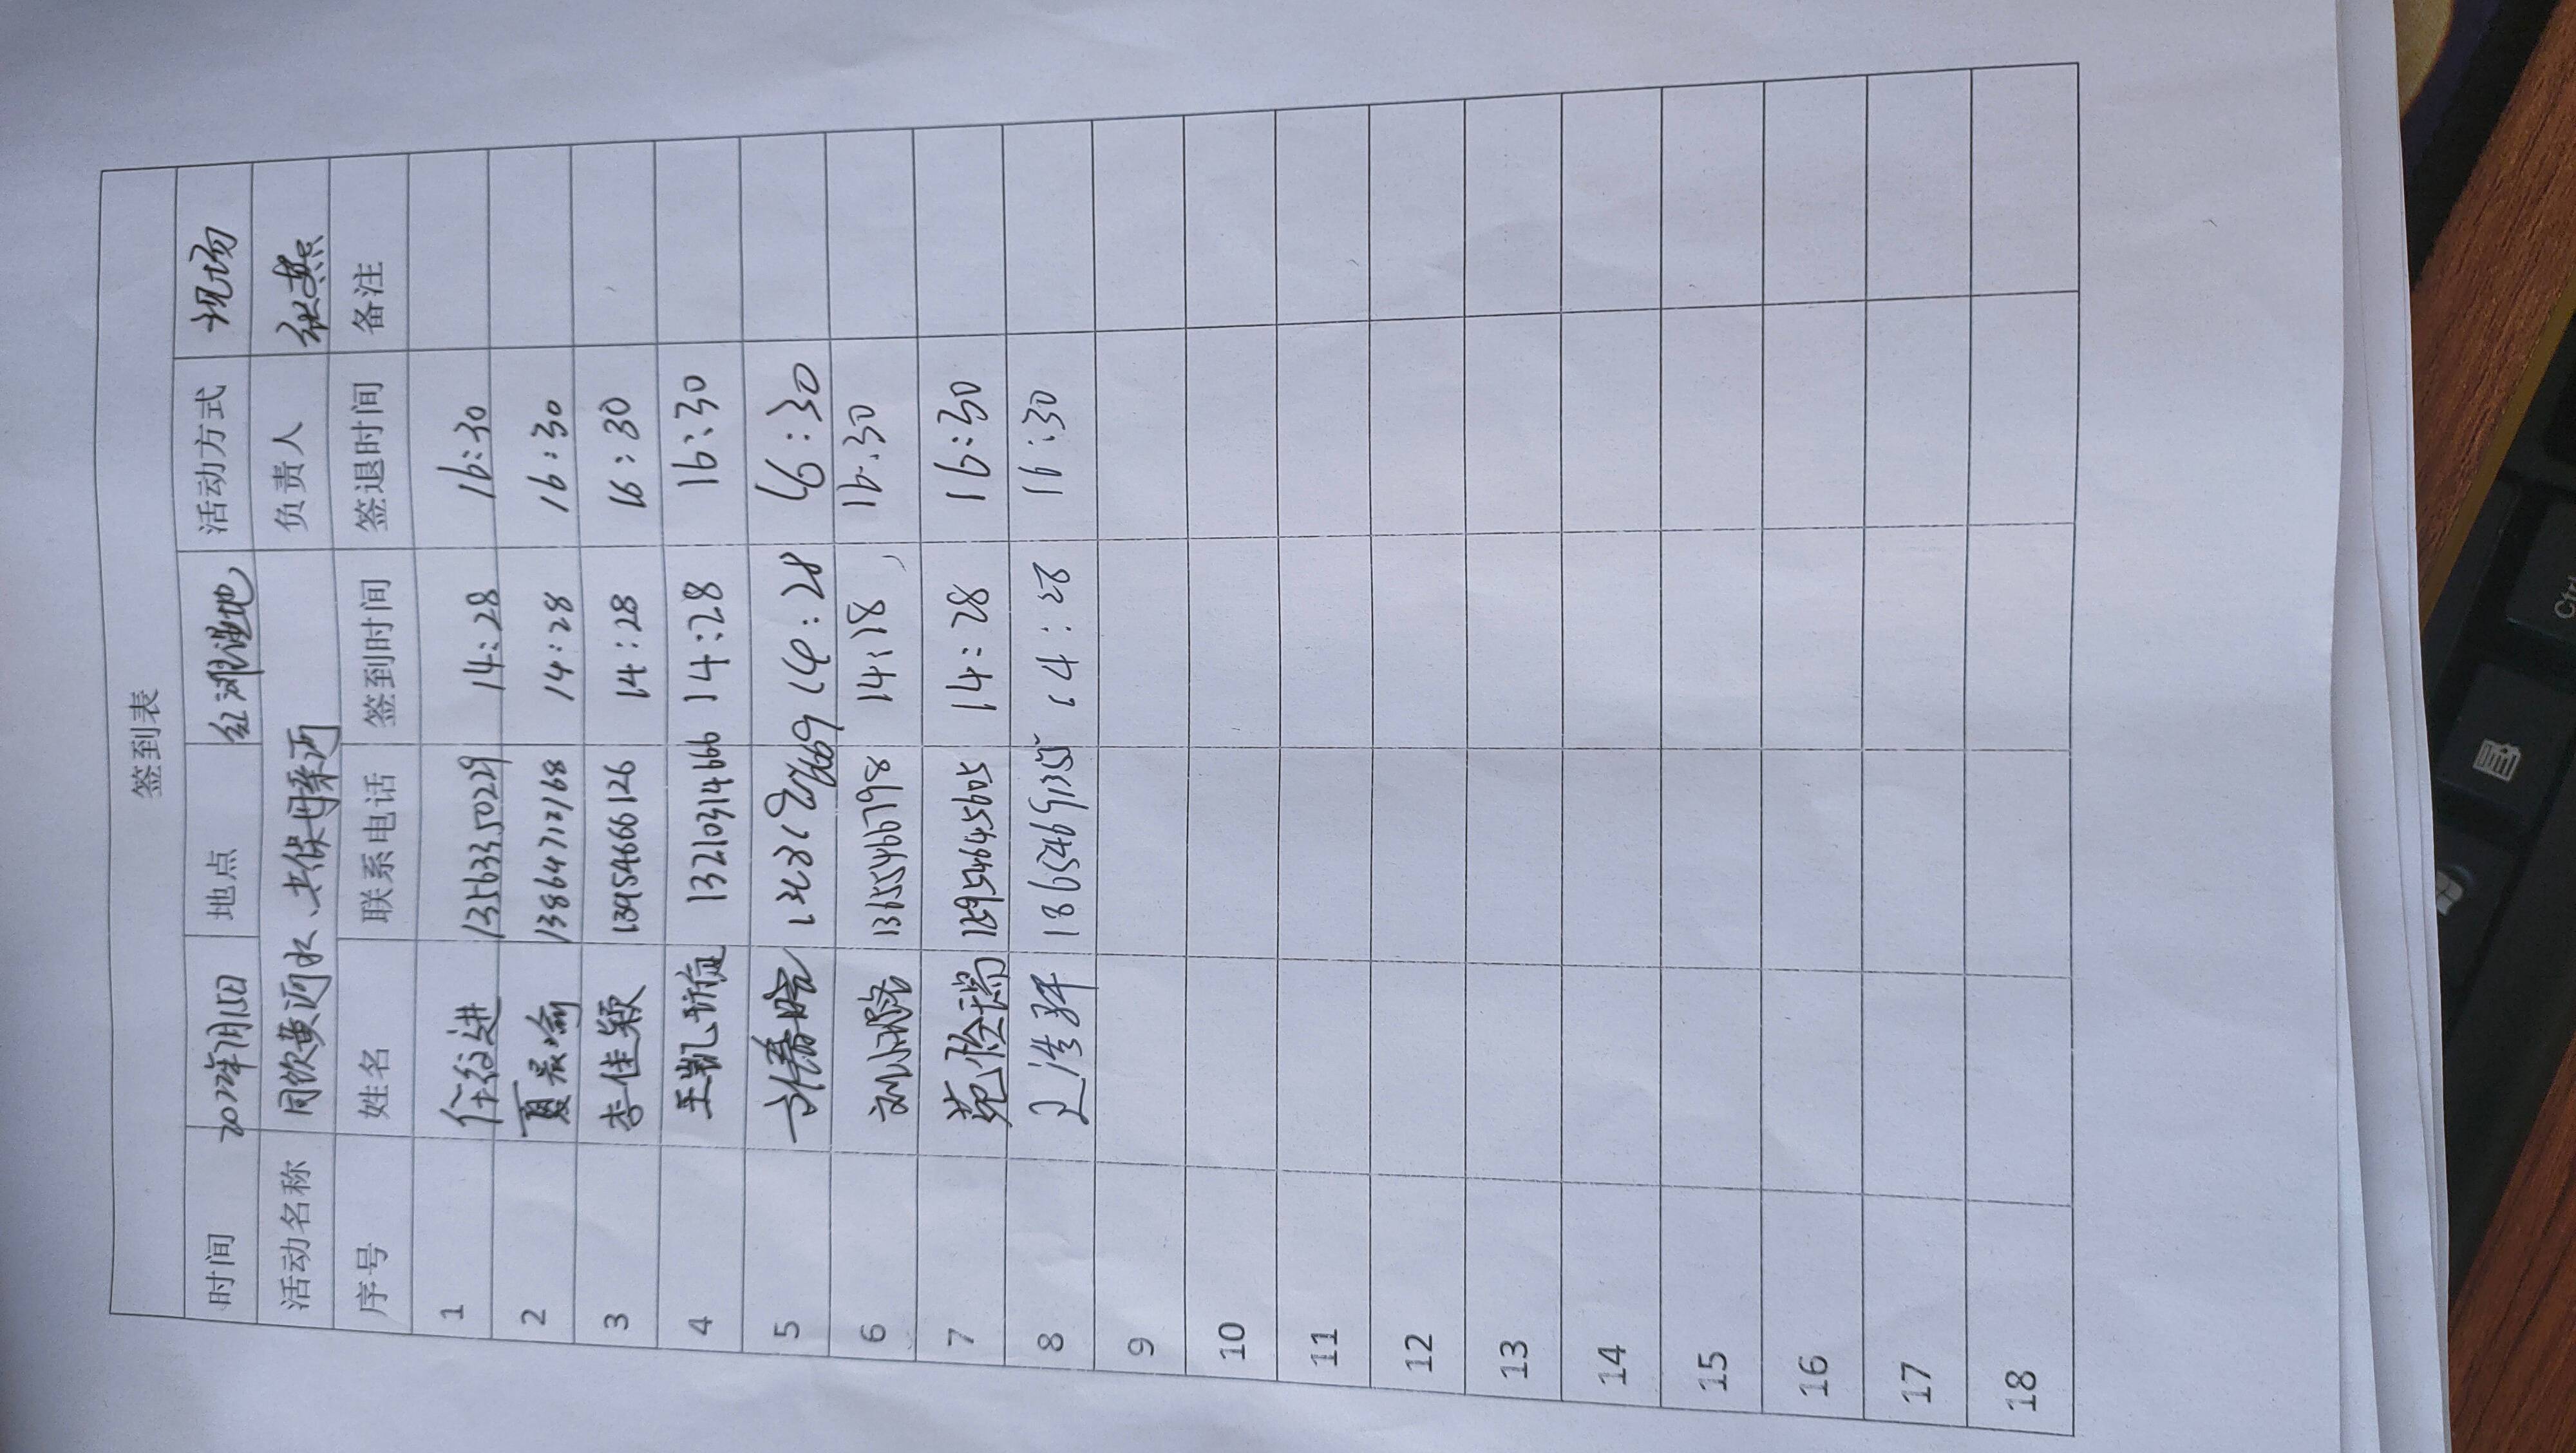 签到表
时间 2022年7月15日 地点 红滩湿地 活动方式 现场
活动名称 同饮黄河水、共保母亲河 负责人 张燕
序号 姓名 联系电话 签到时间 签退时间 备注
1 任 进 13563350229 14:28 16:30
2 夏晨瑜 13864712168 14:28 16:30
3 李佳颖 13954666126 14:28 16:30
4 王凯 13210314666 14:28 16:30
5 14:28 16:30
6 刘 13655466798 14:18 16:30
7 苑 14:28 16:30
8 14:28 16:30
9
10
11
12
13
14
15
16
17
18
Ctrl